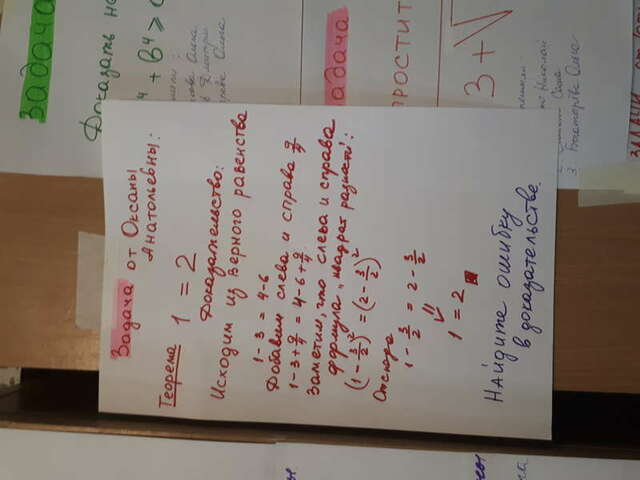 Задача от Оксаны
Анатольевны:
Теорема
1 = 2
Доказательство:
Исходим из верного равенства
1 - 3 = 4 - 6
Добавим слева и справа 9/4
1 - 3 + 9/4 = 4 - 6 + 9/4
Заметим, что слева и справа
формула „квадрат разности":
(1 - 3/2)² = (2 - 3/2)²
Отсюда
1 - 3/2 = 2 - 3/2
⇓
1 = 2
Найдите ошибку
в доказательстве.
Задача
Доказать не
+ b⁴ ≥
Ольга
задача
простит
3 + √
Николай
Саша
3. Ольга